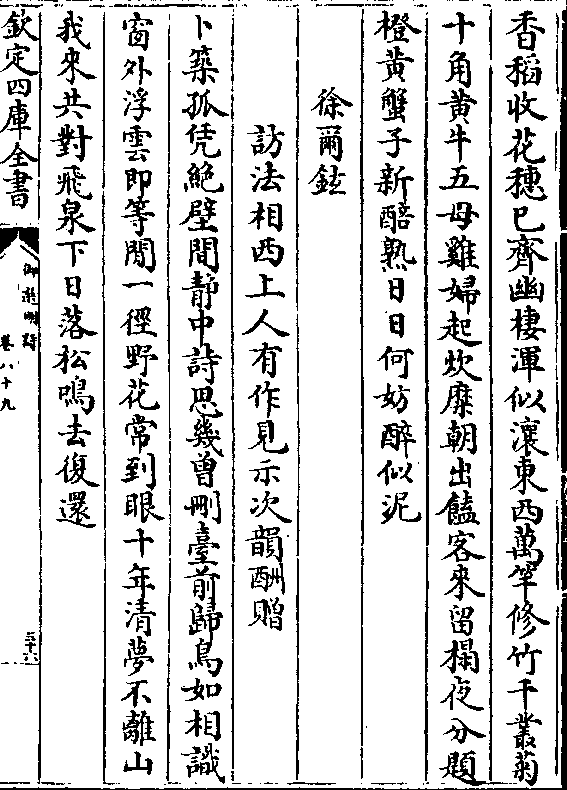 香稻收花穗已齊幽棲渾似瀼東西萬竿修竹千叢菊
十角黄牛五母雞婦起炊糜朝出饁客來留榻夜分題
橙黄蟹子新醅熟日日何妨醉似泥
徐爾鉉
訪法相西上人有作見示次韻酬贈
卜築孤凭絶壁間靜中詩思幾曾刪臺前歸鳥如相識
窗外浮雲即等閒一徑野花常到眼十年清夢不離山
我來共對飛泉下日落松鳴去復還
欽定四庫全書
御選明詩
卷八十九
三十六